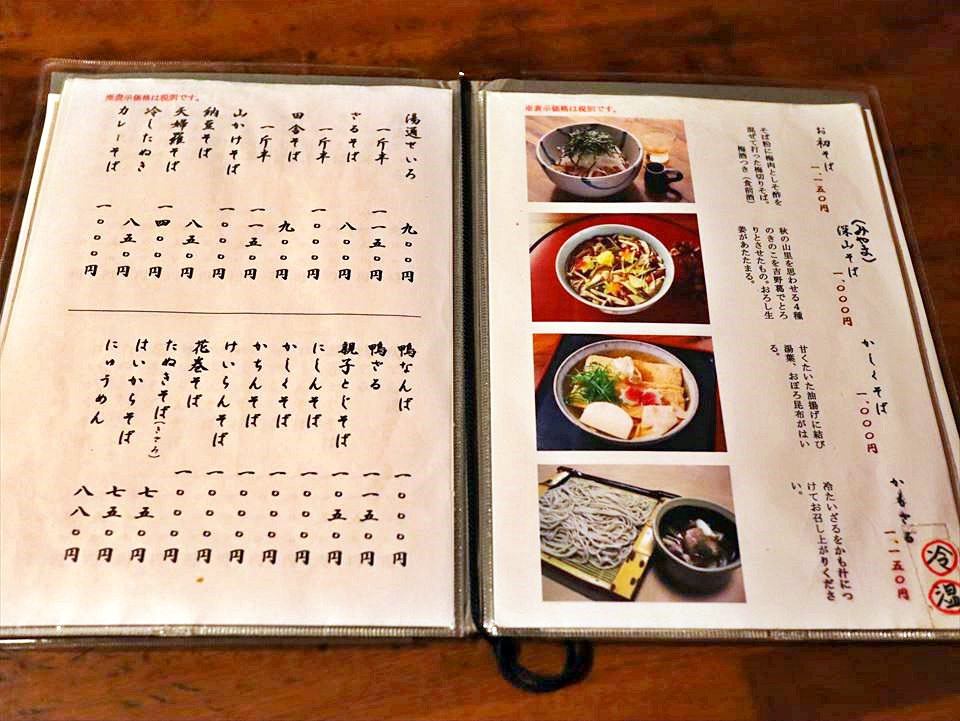 ※表示価格は税別です。
お初そば
一、一五〇円
そば粉に梅肉としそ酢を
混ぜて打った梅切りそば。
梅酒つき（食前酒）
（みやま）
深山そば
一、〇〇〇円
秋の山里を思わせる4種
のきのこを吉野葛でとろ
りとさせたもの。おろし生
姜があたたまる。
かしくそば
一、〇〇〇円
甘くたいた油揚げに結び
湯葉、おぼろ昆布がはい
る。
かもざる
一、一五〇円
冷たいざるをかも汁につ
けてお召し上がりくださ
い。
冷
温
※表示価格は税別です。
湯通せいろ 九〇〇円
一斤半 一一五〇円
ざるそば 八〇〇円
一斤半 一〇〇〇円
田舎そば 九〇〇円
一斤半 一一五〇円
山かけそば 一〇〇〇円
納豆そば 八五〇円
天婦羅そば 一四〇〇円
冷したぬき 八五〇円
カレーそば 一〇〇〇円
鴨なんば 一〇〇〇円
鴨ざる 一一五〇円
親子とじそば 一〇五〇円
にしんそば 一〇〇〇円
かしくそば 一〇〇〇円
かちんそば 一〇〇〇円
けいらんそば 一〇〇〇円
花巻そば 一〇〇〇円
たぬきそば（きざみ） 七五〇円
はいからそば 七五〇円
にゅうめん 八八〇円